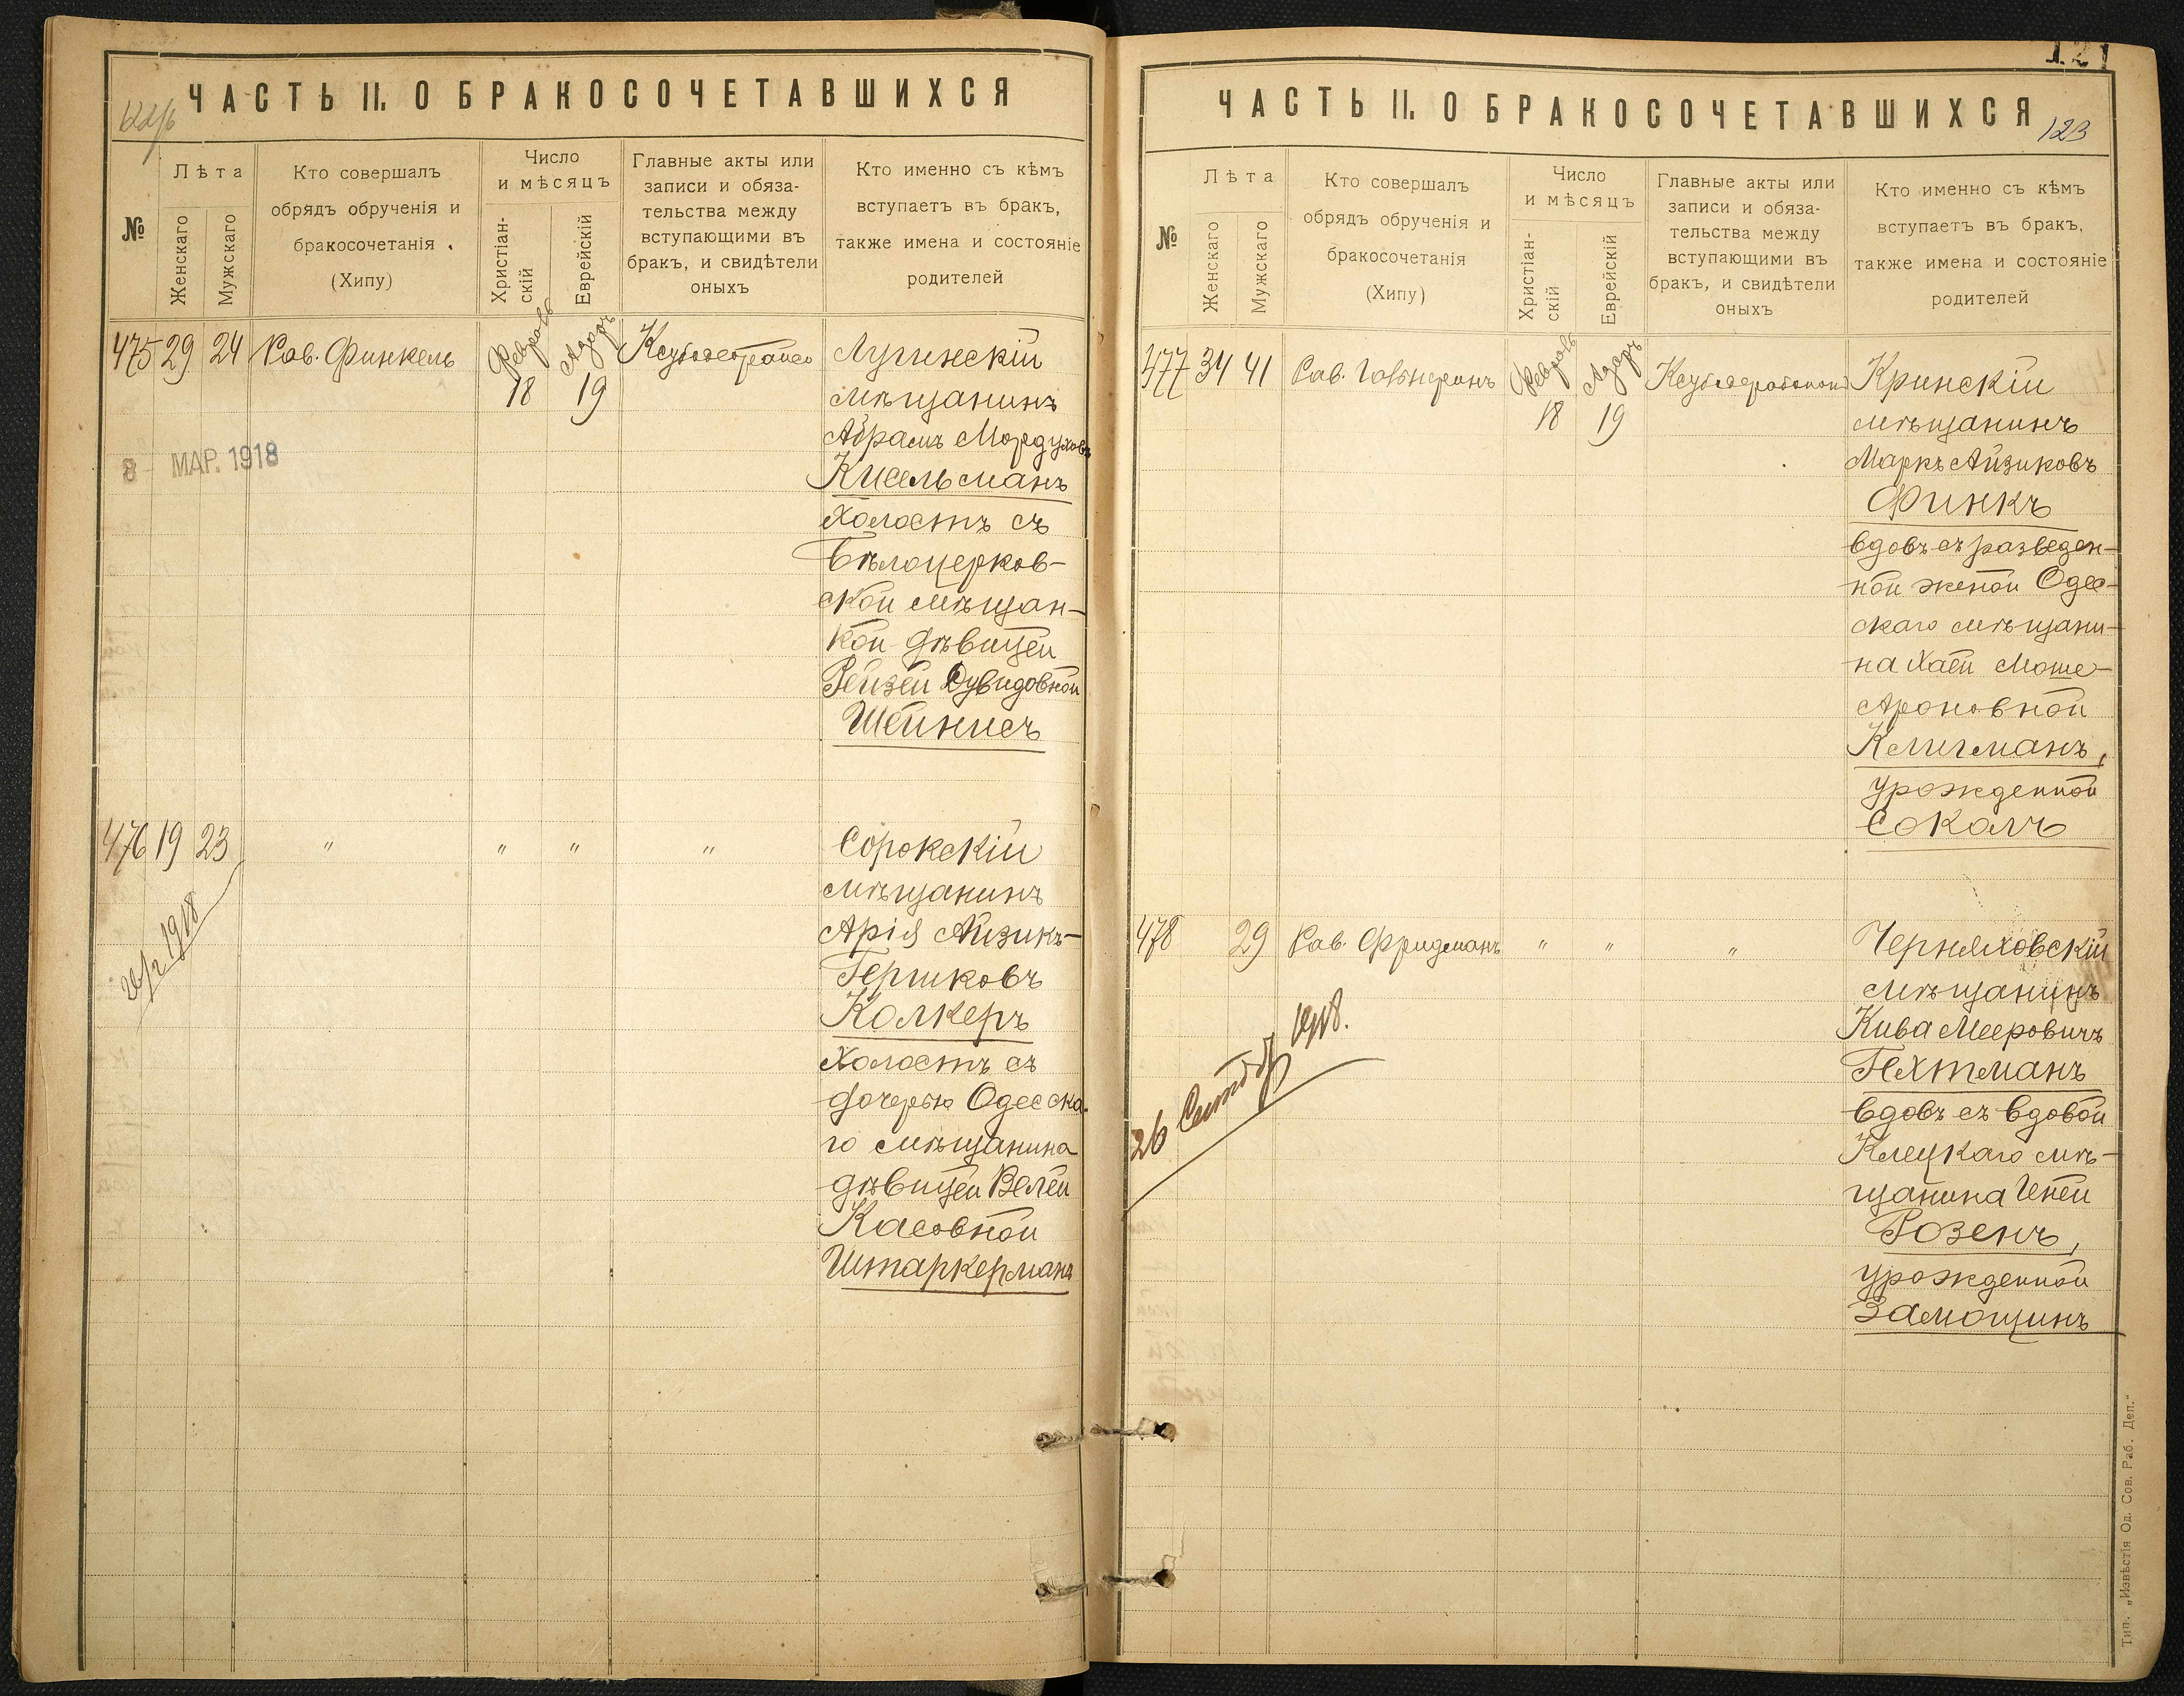 ЧАСТЬ II. О БРАКОСОЧЕТАВШИХСЯ
№
Лѣта
Женскаго
Мужскаго
Кто совершалъ
обрядъ обрученія и
бракосочетанія
(Хипу)
Число
и мѣсяцъ
Христіан-
скій
Еврейскій
Главные акты или
записи и обяза-
тельства между
вступающими въ
бракъ, и свидѣтели
оныхъ
Кто именно съ кѣмъ
вступаетъ въ бракъ,
также имена и состояніе
родителей
475 29 24 Рав. Финкель
Февраль
18
Адаръ
19
Лугинскій
мѣщанинъ
Абрамъ Мордуховъ
Кисельманъ
холостъ съ
Бѣлоцерков-
ской мѣщан-
кой дѣвицей
Рейзей Дувидовной
Шейнисъ
8 МАР. 1918
476 19 23 " " " "
Сорокскій
мѣщанинъ
Арія Айзикъ-
Гершковъ
Колкеръ
холостъ съ
дочерью Одесска-
го мѣщанина
дѣвицей Велей
Касовной
Штаркерманъ
1918
121
ЧАСТЬ II. О БРАКОСОЧЕТАВШИХСЯ
123
№
Лѣта
Женскаго
Мужскаго
Кто совершалъ
обрядъ обрученія и
бракосочетанія
(Хипу)
Число
и мѣсяцъ
Христіан-
скій
Еврейскій
Главные акты или
записи и обяза-
тельства между
вступающими въ
бракъ, и свидѣтели
оныхъ
Кто именно съ кѣмъ
вступаетъ въ бракъ,
также имена и состояніе
родителей
477 34 41 Рав.
Февраль
18
Адаръ
19
Кринскій
мѣщанинъ
Маркъ Айзиковъ
Финкъ
вдовъ съ разведен-
ной женой Одес-
скаго мѣщани-
на Хаей Моше-
Ароновной
Клигманъ,
урожденной
Сокалъ
478 29 Рав. Фридманъ " " "
Черняховскій
мѣщанинъ
Кива Мееровичъ
Гехтманъ
вдовъ съ вдовой
Клецкаго мѣ-
щанина Ентей
Розенъ,
урожденной
Замощинъ
26 1918.
Тип. „Извѣстія Од. Сов. Раб. Деп."